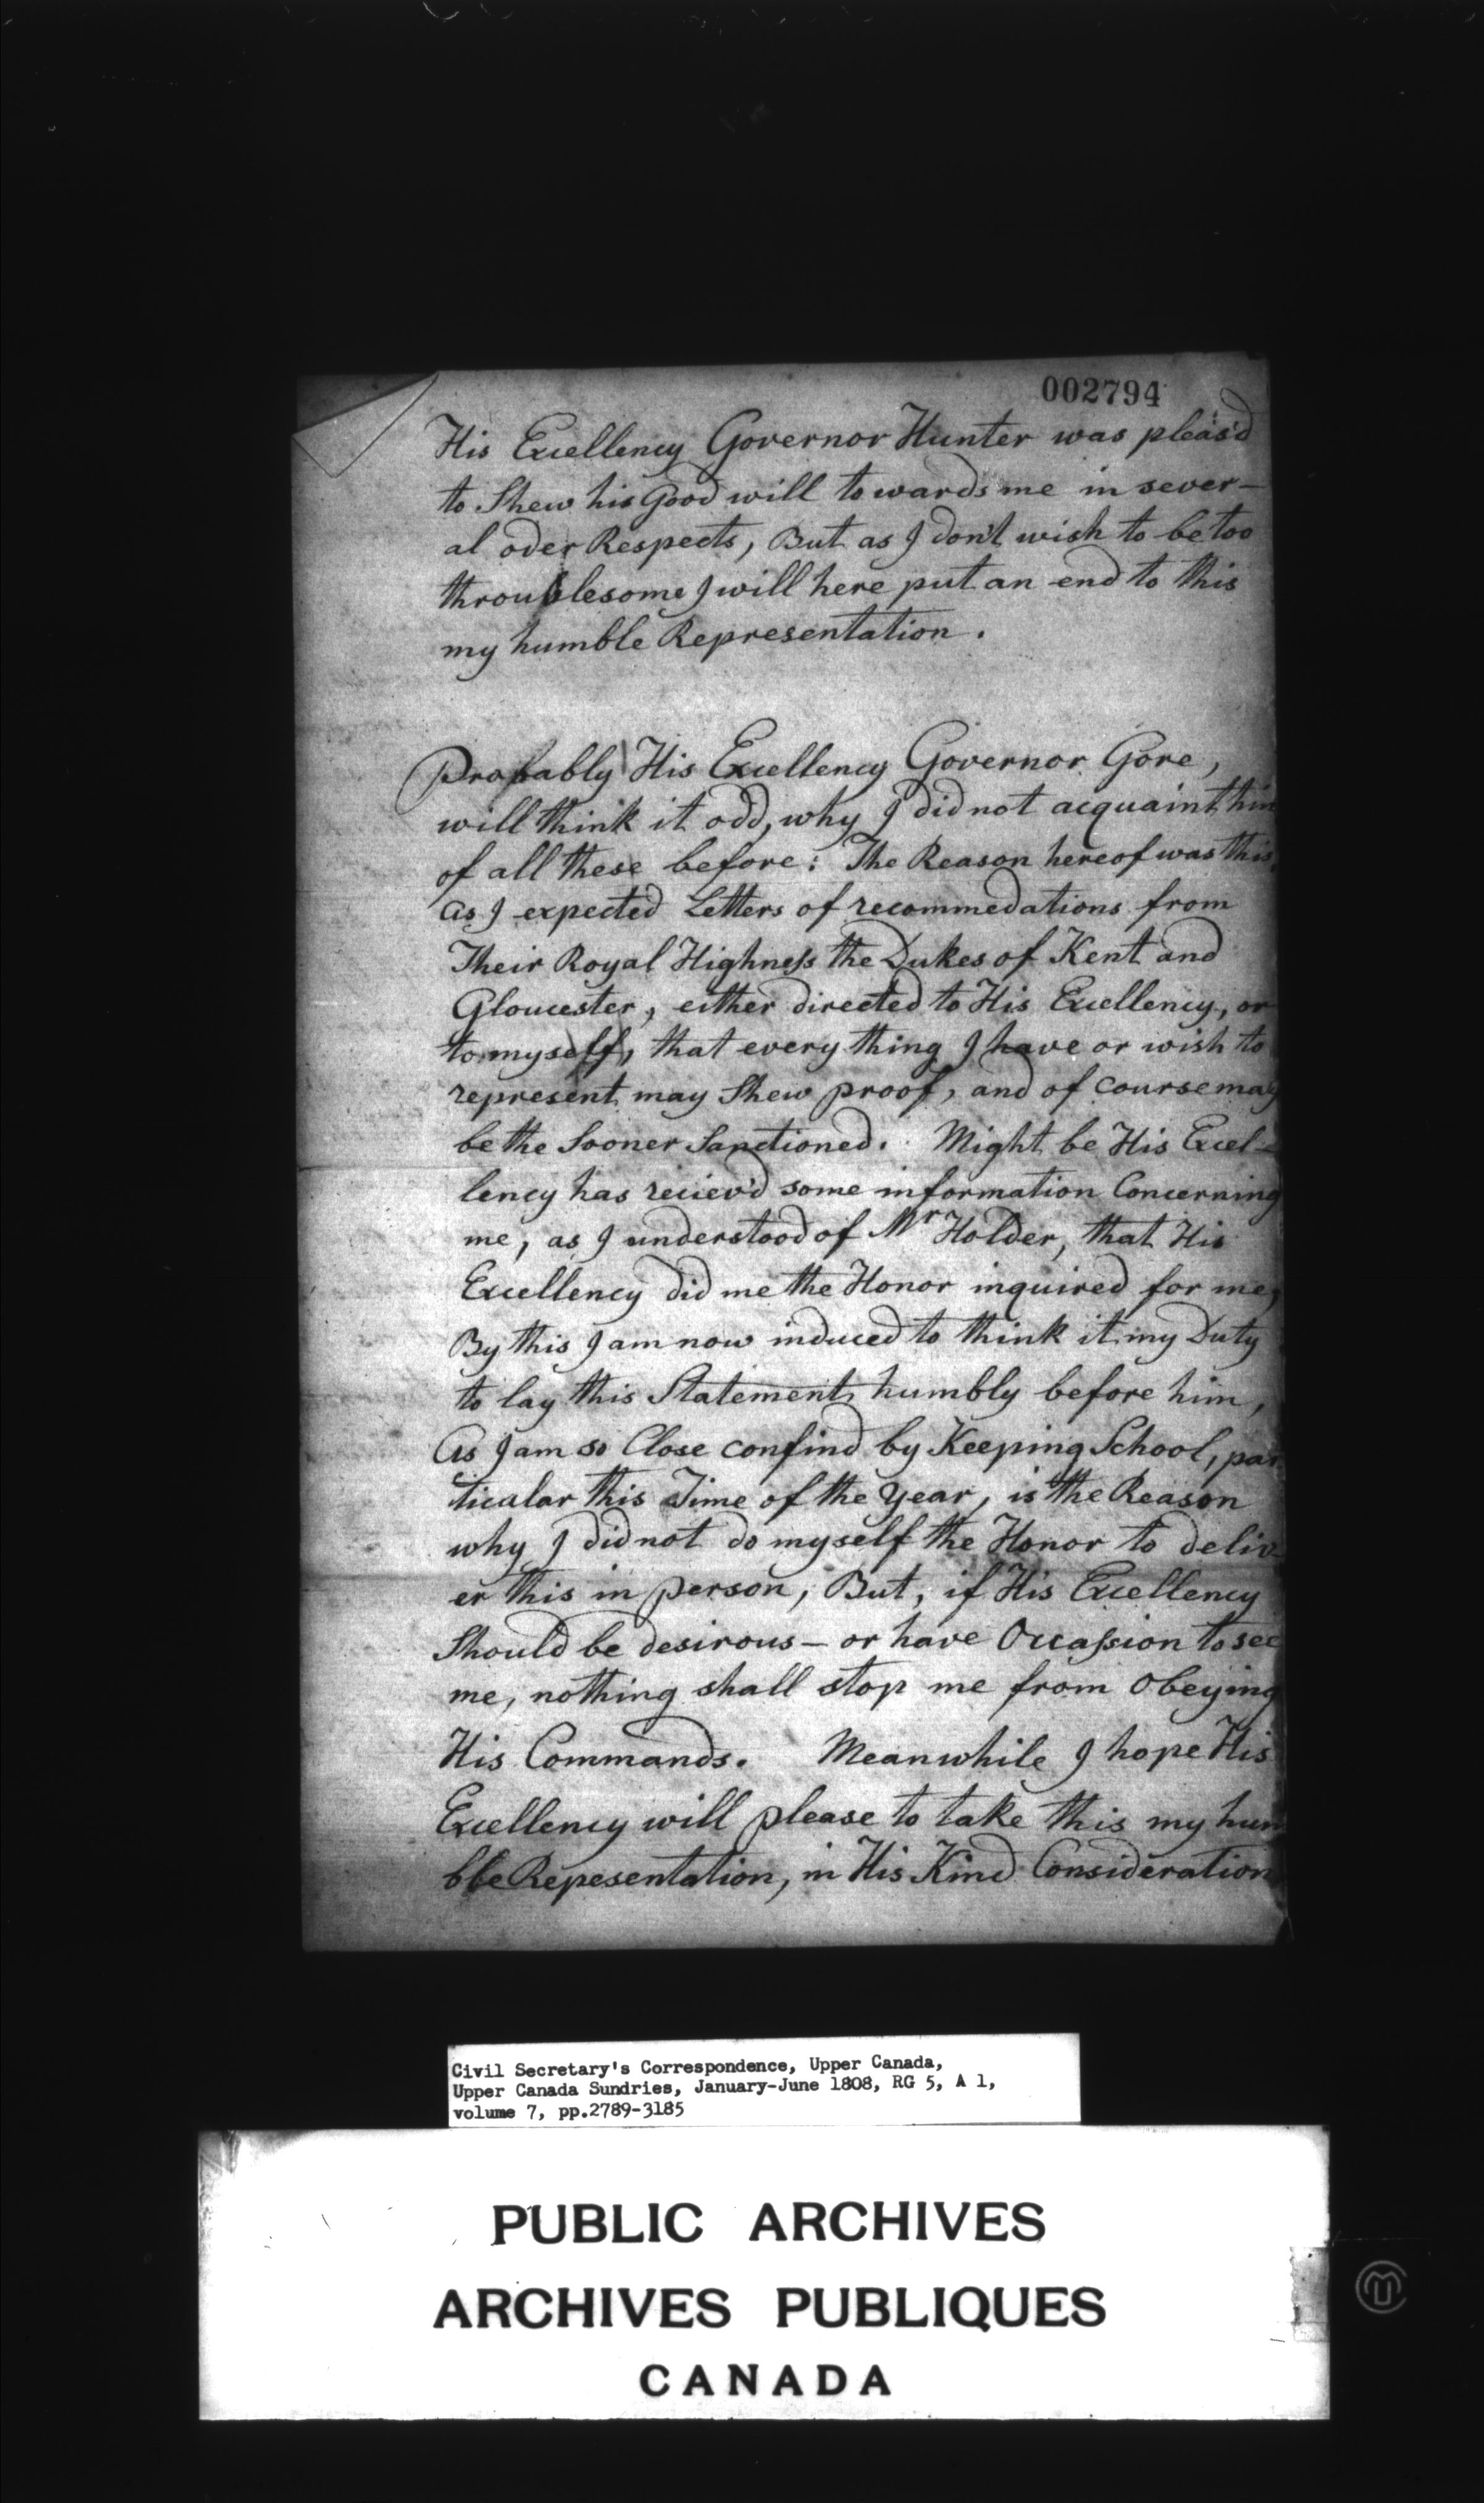 002794
His Excellency Governor Hunter was pleas'd
to Shew his Good will towards me in sever-
al oder Respects, But as I don't wish to be too
throublesome I will here put an end to this
my humble Representation.
Probably His Excellency Governor Gore,
will think it odd, why I did not acquaint him
of all these before: The Reason hereof was this
as I expected Letters of recommedations from
Their Royal Highness the Dukes of Kent and
Gloucester, either directed to His Excellency, or
to myself, that every thing I have or wish to
represent may Shew proof, and of course may
be the Sooner Sanctioned. Might be His Excel-
lency has reciev'd some information Concerning
me, as I understood of Mr Holder, that His
Excellency did me the Honor inquired for me,
By this I am now induced to think it my Duty
to lay this Statement humbly before him,
As I am so Close confind by Keeping School, par
ticular this Time of the Year, is the Reason
why I did not do myself the Honor to deliv-
er this in person, But, if His Excellency
Should be desirous - or have Occassion to see
me, nothing shall stop me from Obeying
His Commands. Meanwhile I hope His
Excellency will please to take this my hum
ble Repesentation, in His Kind Consideration
Civil Secretary's Correspondence, Upper Canada,
Upper Canada Sundries, January-June 1808, RG 5, A 1,
volume 7, pp.2789-3185
PUBLIC ARCHIVES
ARCHIVES PUBLIQUES
CANADA